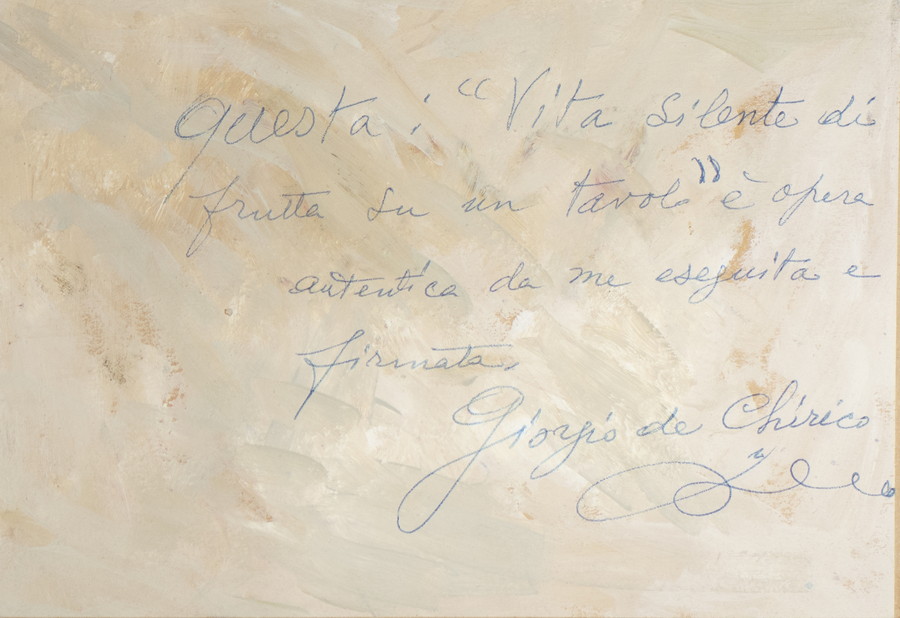 questa : “Vita silente di
frutta su un tavolo” è opera
autentica da me eseguita e
firmata.
Giorgio de Chirico